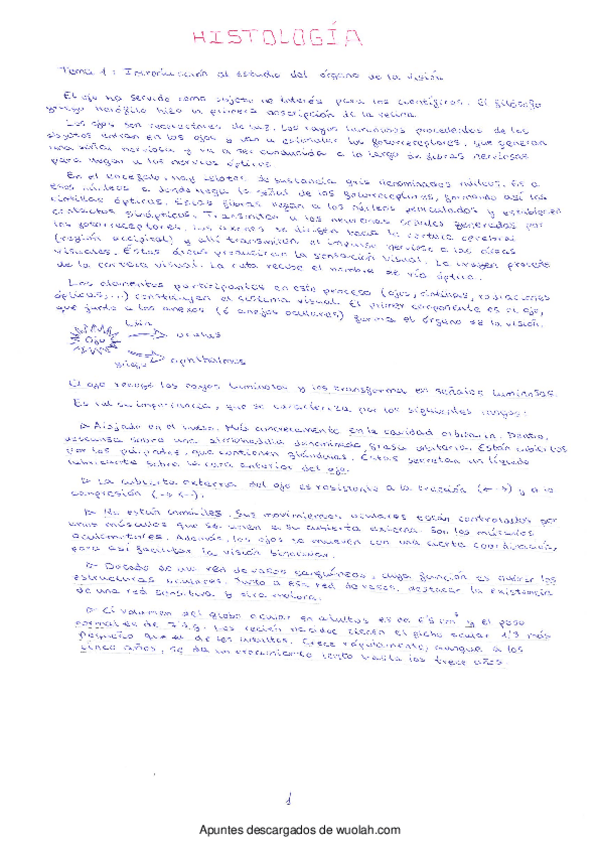 HISTOLOGÍA
Tema 1: Introducción al estudio del órgano de la visión
El ojo ha servido como objeto de interés para los científicos. El filósofo
griego Herófilo hizo la primera descripción de la retina.
Los ojos son receptores de luz. Los rayos luminosos procedentes de los
objetos entran en los ojos y van a estimular los fotorreceptores, que generan
una señal nerviosa y va a ser conducida a lo largo de fibras nerviosas
para llegar a los nervios ópticos.
En el encéfalo, hay islotes de sustancia gris denominados núcleos. Es a
esos núcleos a donde llega la señal de los fotorreceptores, formando así las
cintillas ópticas. Estas fibras llegan a los núcleos geniculados y establecen
contactos sinápticos. Transmiten a las neuronas señales generadas por
los fotorreceptores. Los axones se dirigen hacia la corteza cerebral
(región occipital) y allí transmiten el impulso nervioso a las áreas
visuales. Estas áreas producirán la sensación visual. La imagen procede
de la corteza visual. La ruta recibe el nombre de vía óptica.
Los elementos participantes en este proceso (ojos, cintillas, radiaciones
ópticas,...) constituyen el sistema visual. El primer componente es el ojo,
que junto a los anexos (ó anejos oculares) forma el órgano de la visión.
Latín
Ojo oculus
Griego ophthalmos
El ojo recoge los rayos luminosos y los transforma en señales luminosas.
Es tal su importancia, que se caracteriza por los siguientes rasgos:
Alojado en el cráneo. Más concretamente en la cavidad orbitaria. Dentro,
descansa sobre una almohadilla denominada grasa orbitaria. Están cubiertos
por los párpados, que contienen glándulas. Estas secretan un líquido
lubricante sobre la cara anterior del ojo.
La cubierta externa del ojo es resistente a la tracción (← →) y a la
compresión (→ ←).
No están inmóviles. Sus movimientos oculares están controlados por
unos músculos que se unen a su cubierta externa. Son los músculos
oculomotores. Además, los ojos se mueven con una cierta coordinación,
para así facilitar la visión binocular.
Dotado de una red de vasos sanguíneos, cuya función es nutrir las
estructuras oculares. Junto a esa red de vasos, destacar la existencia
de una red sensitiva y otra motora.
El volumen del globo ocular en adultos es de 6'5 cm³ y el peso
normal es de 7'5 g. Los recién nacidos tienen el globo ocular 1'3 más
pequeño que el de los adultos. Crece rápidamente, aunque a los
cinco años, se da un crecimiento lento hasta los trece años.
1
Apuntes descargados de wuolah.com